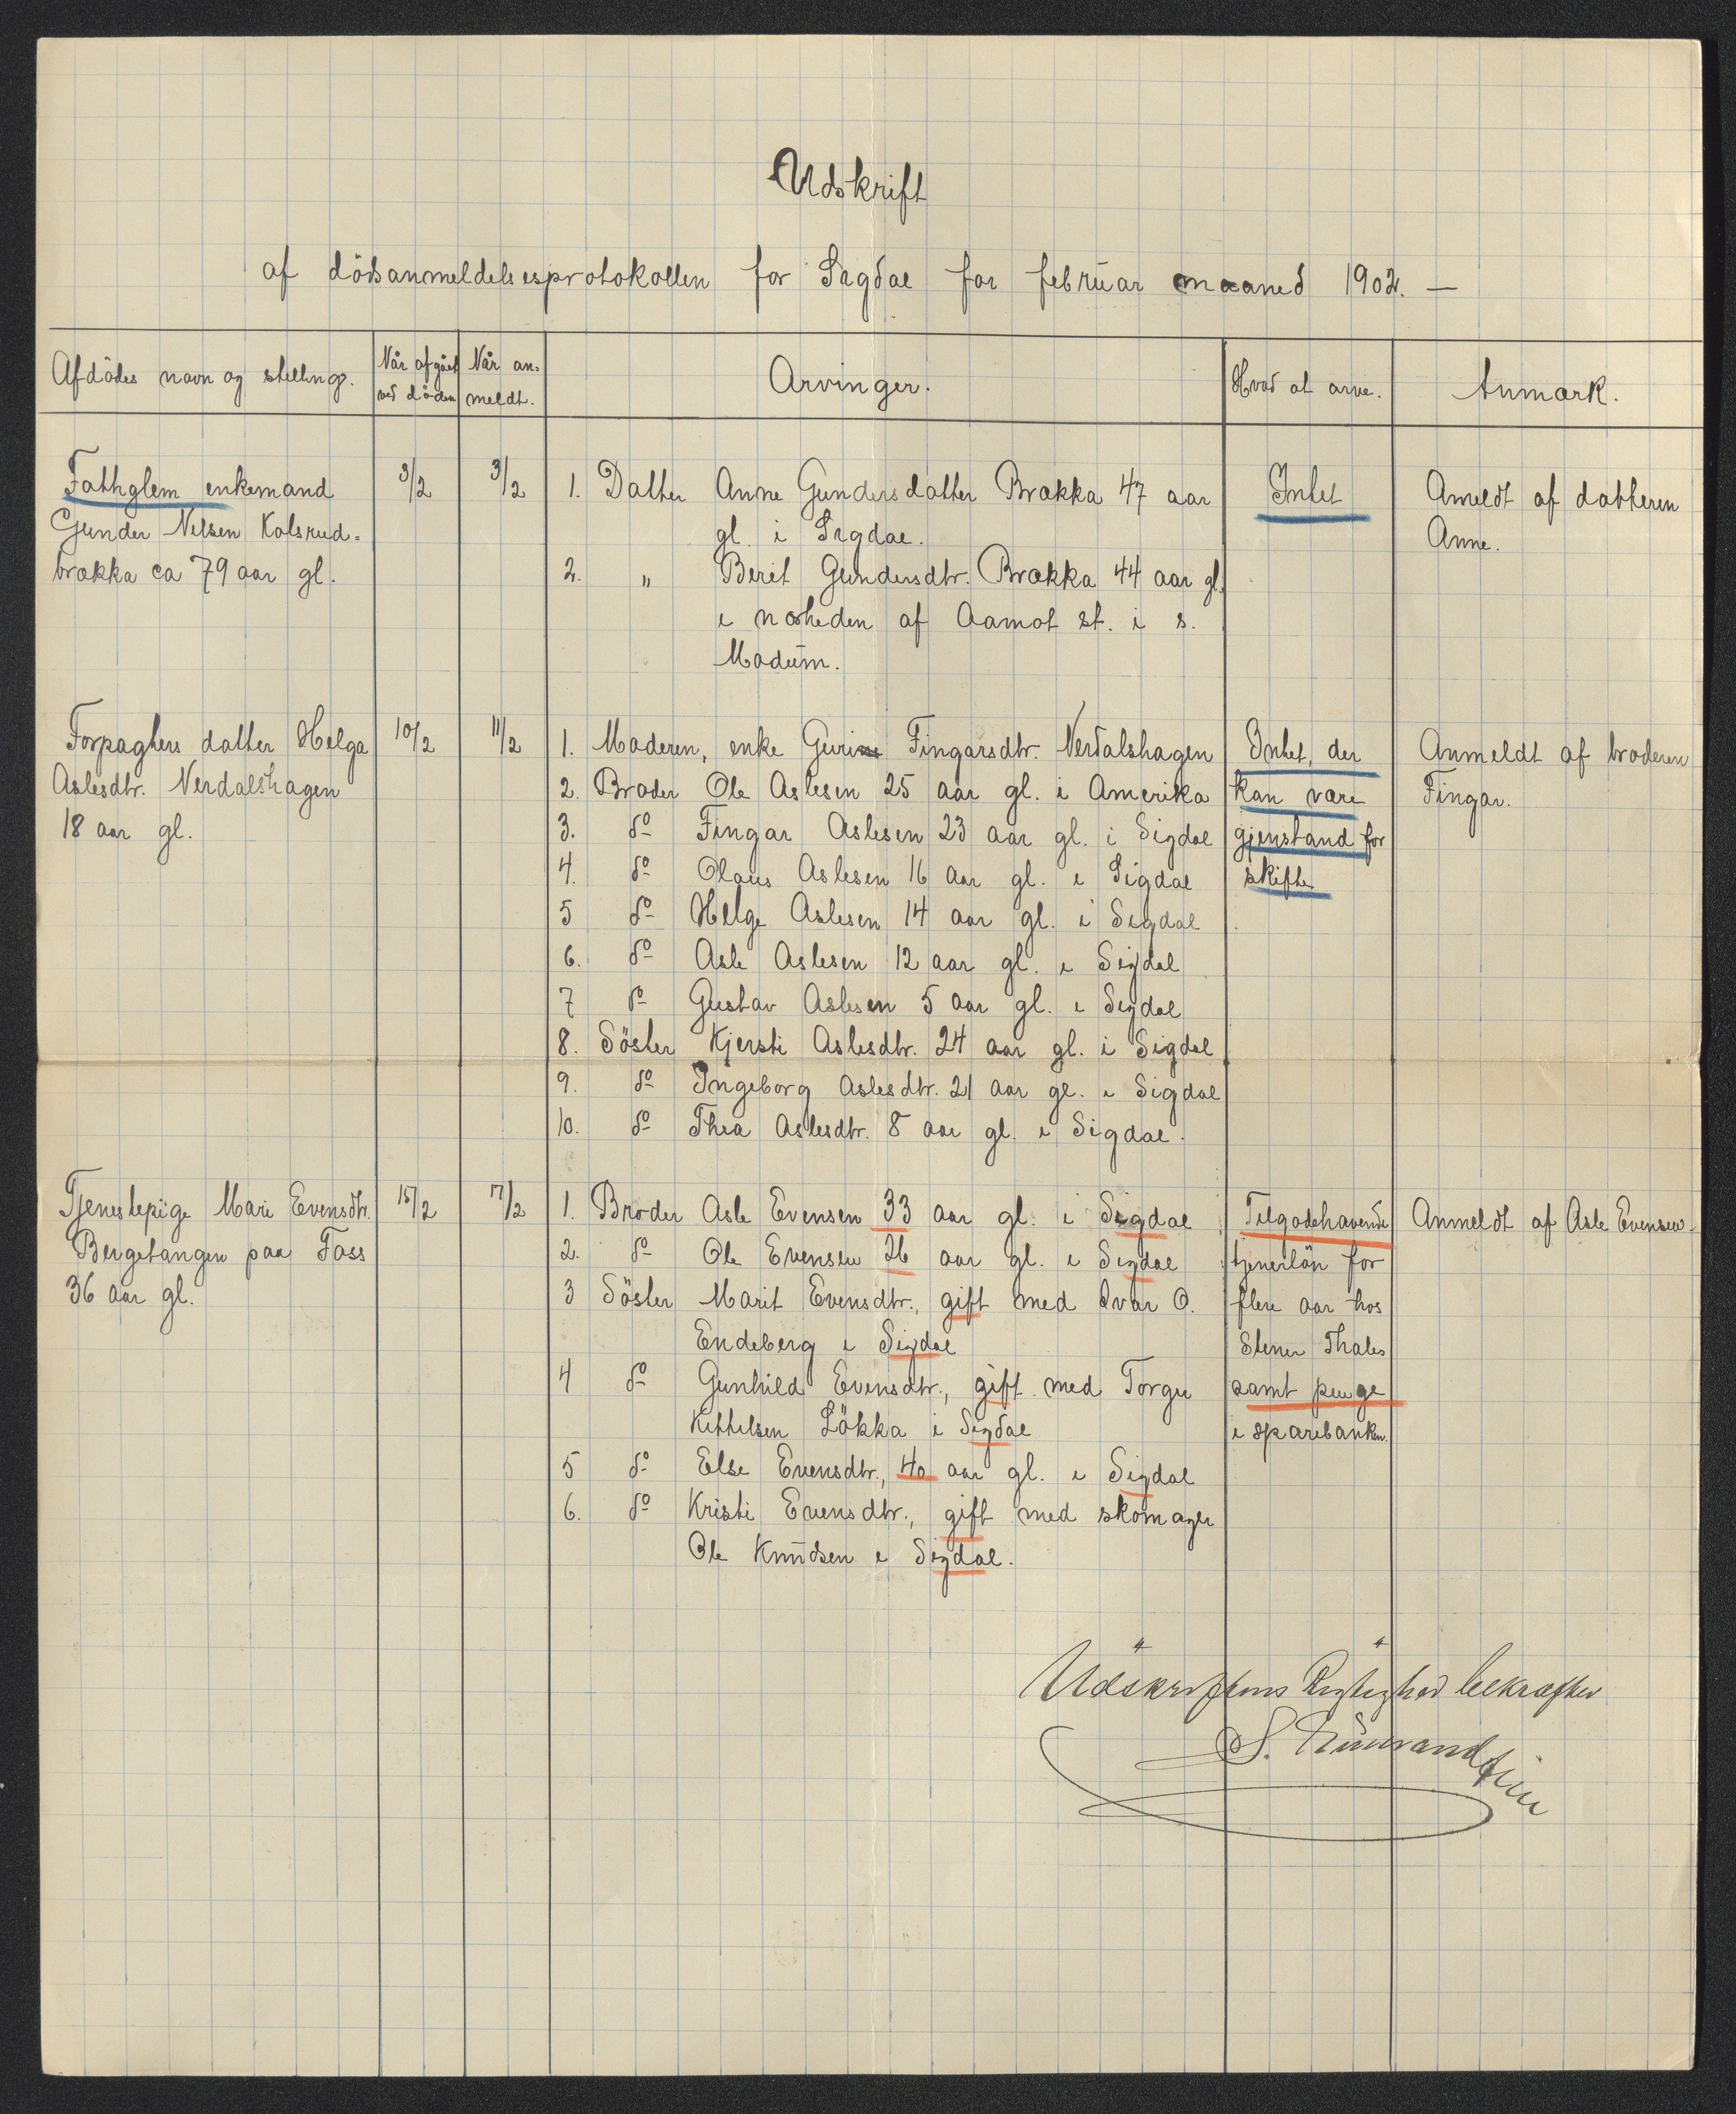 Udskrift
af dödsanmeldelsesprotokollen for Sigdal for februar maaned 1902. —
Afdödes navn og stilling.
Når afgået
ved döden
Når an-
meldt.
Arvinger.
Hvad at arve.
Anmærk.
Fattiglem enkemand
Gunder Nilsen Kolsrud-
brækka ca 79 aar gl.
3/2
3/2
1. Datter Anne Gundersdatter Brækka 47 aar
gl. i Sigdal.
2. " Berit Gundersdtr. Brækka 44 aar gl.
i nærheden af Aamot st. i s.
Modum.
Intet
Anmeldt af datteren
Anne.
Forpagters datter Helga
Aslesdtr. Nerdalshagen
18 aar gl.
10/2
11/2
1. Moderen, enke Guri Fingarsdtr. Nerdalshagen
2. Broder Ole Aslesen 25 aar gl. i Amerika
3. do Fingar Aslesen 23 aar gl. i Sigdal
4. do Olaus Aslesen 16 aar gl. i Sigdal
5 do Helge Aslesen 14 aar gl. i Sigdal
6. do Asle Aslesen 12 aar gl. i Sigdal
7 do Gustav Aslesen 5 aar gl. i Sigdal
8. Söster Kjersti Aslesdtr. 24 aar gl. i Sigdal
9. do Ingeborg Aslesdtr. 21 aar gl. i Sigdal
10. do Thea Aslesdtr. 8 aar gl. i Sigdal.
Intet, der
kan være
gjenstand for
skifte
Anmeldt af broderen
Fingar.
Tjenestepige Mari Evensdtr.
Bergetangen paa Foss
36 aar gl.
15/2
17/2
1. Broder Asle Evensen 33 aar gl. i Sigdal
2. do Ole Evensen 26 aar gl. i Sigdal
3 Söster Marit Evensdtr., gift med Ivar O.
Endeberg i Sigdal
4 do Gunhild Evensdtr., gift med Torger
Kittelsen Lökka i Sigdal
5 do Else Evensdtr., 40 aar gl. i Sigdal
6. do Kristi Evensdtr., gift med skomager
Ole Knudsen i Sigdal.
Tilgodehavende
tjenerlön for
flere aar hos
Stener Thales
samt penge
i sparebanken.
Anmeldt af Asle Evensen.
Udskriftens Rigtighed bekræfter